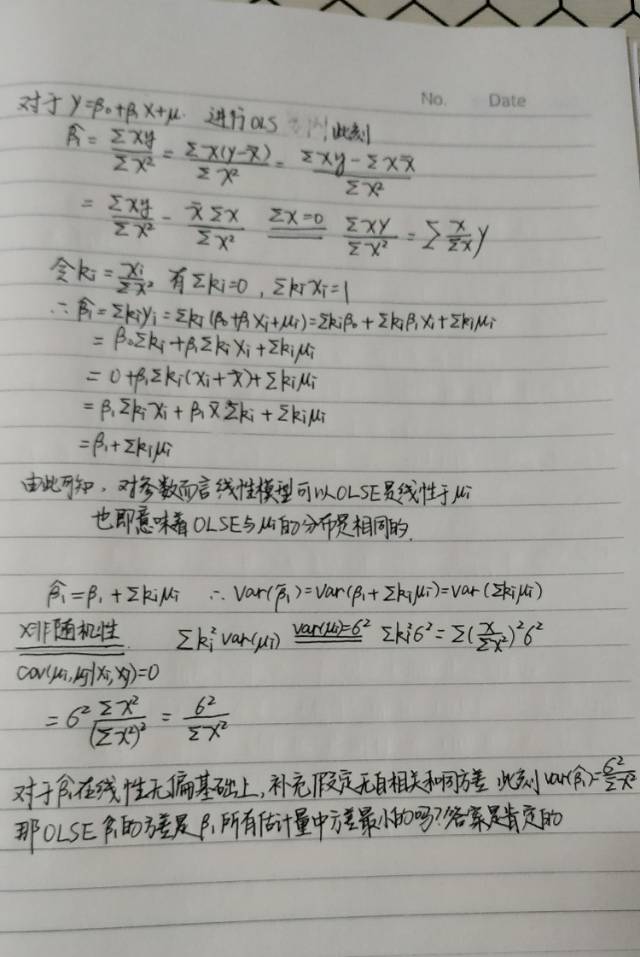 No. Date
对于 Y=β₀+β₁X+μ. 进行OLS 此刻
β̂₁ = Σxy/Σx² = Σx(Y-x̄)/Σx² = Σxy - Σxx̄/Σx²
= Σxy/Σx² - x̄Σx/Σx² Σx=0 ΣxY/Σx² = Σ x/Σx Y
令ki = xi/Σx² 有Σki=0, ΣkiXi=1
∴ β̂₁=Σkiyi=Σki(β₀+β₁Xi+μi)=Σkiβ₀+Σkiβ₁Xi+Σkiμi
= β₀Σki+β₁ΣkiXi+Σkiμi
= 0+β₁Σki(xi+x̄)+Σkiμi
= β₁Σkixi+β₁x̄Σki+Σkiμi
= β₁+Σkiμi
由此可知, 对参数而言线性模型可以OLSE是线性于μi
也即意味着OLSE与μi的分布是相同的.
β̂₁=β₁+Σkiμi ∴ Var(β̂₁)=Var(β₁+Σkiμi)=Var(Σkiμi)
X非随机性 Σki²var(μi) var(μi)=6² Σki²6²=Σ(x/Σx²)²6²
cov(μi,μj|xi,xj)=0
= 6² Σx²/(Σx²)² = 6²/Σx²
对于β̂₁在线性无偏基础上, 补充假定无自相关和同方差 此刻var(β̂₁)=6²/Σx²
那OLSE β̂₁的方差是β₁所有估计量中方差最小的吗?答案是肯定的